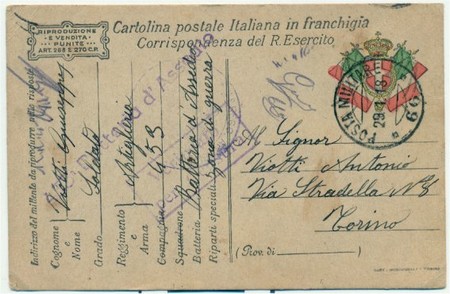 RIPRODUZIONE
E VENDITA
PUNITE
ART. 268 E 270 C.P.
Cartolina postale Italiana in franchigia
Corrispondenza del R. Esercito
POSTA MILITARE
29.1.18
69
Indirizzo del mittente da riprodurre nella risposta
Cognome e Nome Viotti Giuseppe
Grado Soldato
Reggimento e Arma Artiglieria
Compagnia 453
Squadrone
Batteria Batteria d'Assedio
Riparti speciali Zona di guerra
d'Assedio
Al Signor
Viotti Antonio
Via Stradella N
Torino
(Prov. di )